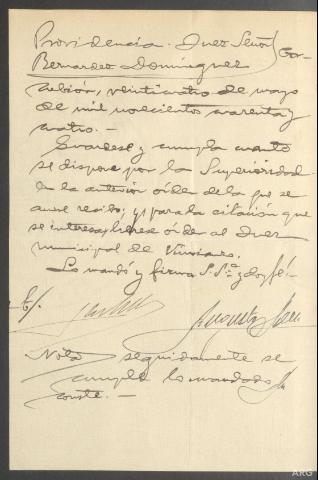 Providencia. Juez Señor Cor-
Bernardo Domínguez
cubión, veinticuatro de mayo
de mil novecientos cuarenta y
cuatro.-
Guardese y cumpla cuanto
se dispone por la Superioridad
en la anterior orden de la que se
acuse recibo; y para la citación que
se interesa, librese orden al Juez
municipal de Vimianzo.
Lo mandó y firma S.Sª y doy fé.-
E/.
Augusto
Nota Seguidamente se
cumple lo mandado
conste.-
ARG